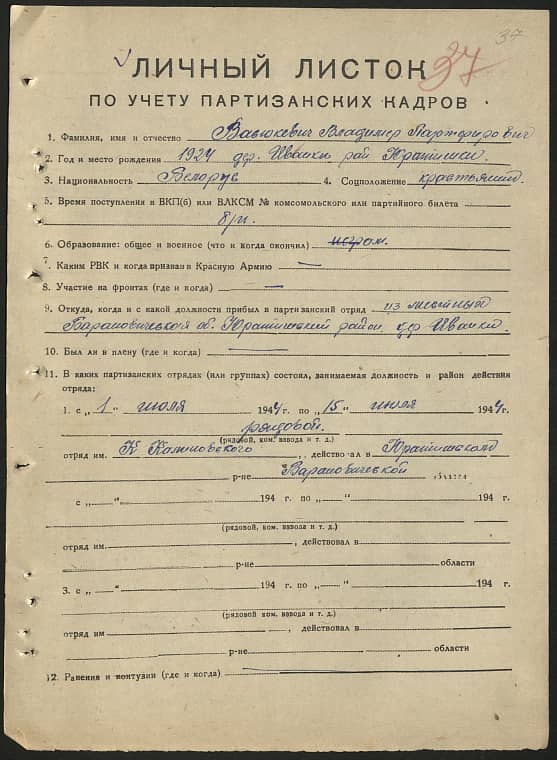 37
37
ЛИЧНЫЙ ЛИСТОК
ПО УЧЕТУ ПАРТИЗАНСКИХ КАДРОВ
1. Фамилия, имя и отчество Васюкевич Владимир Парфирович
2. Год и место рождения 1924 дер. Ивашки рай Юратишки.
3. Национальность Белорус 4. Соцположение крестьянин.
5. Время поступления в ВКП(б) или ВЛКСМ № комсомольского или партийного билета
б/п.
6. Образование: общее и военное (что и когда окончил)
7. Каким РВК и когда призван в Красную Армию —
8. Участие на фронтах (где и когда) —
9. Откуда, когда и с какой должности прибыл в партизанский отряд из местный
Барановическая об. Юратишский район дер Ивашки.
10. Был ли в плену (где и когда) —
11. В каких партизанских отрядах (или группах) состоял, занимаемая должность и район действия
отряда:
1. с „1„ июля 1944 г. по „15„ июля 1944 г.
рядовой.
(рядовой, ком. взвода и т. д.)
отряд им. К Калиновского, действовал в Юратишском
р-не Барановической области
с „ “ 194 г. по „ “ 194 г.
(рядовой, ком. взвода и т. д.)
отряд им. , действовал в
р-не области
3. с „ “ 194 г. по „ “ 194 г.
(рядовой, ком. взвода и т. д.)
отряд им , действовал в
р-не области
12. Ранения и контузии (где и когда) —